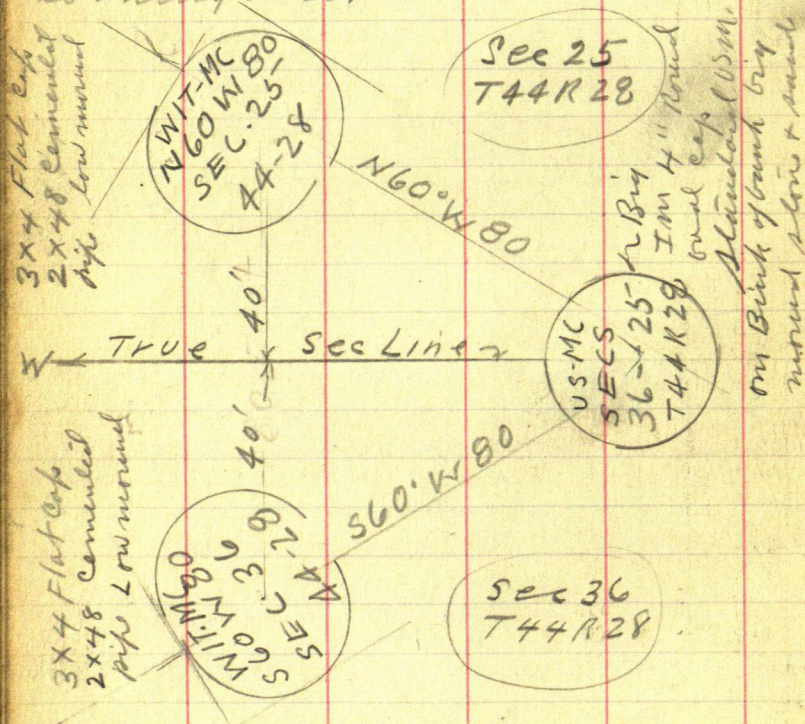 3x4 Flat Cap
2x48 Cemented
pipe low mound
WIT-MC
N60W80
SEC. 25
44-28
Sec 25
T44R28
N60°W80
40'
True Sec Line
W
40'
US-MC
SECS
36-+25
T44R28
Big
4" Round
cap
Standard
on bank big
mound stone +
S60°W80
3x4 Flat Cap
2x48 Cemented
pipe Low mound
WIT-MC
S60W80
SEC 36
44-28
Sec 36
T44R28